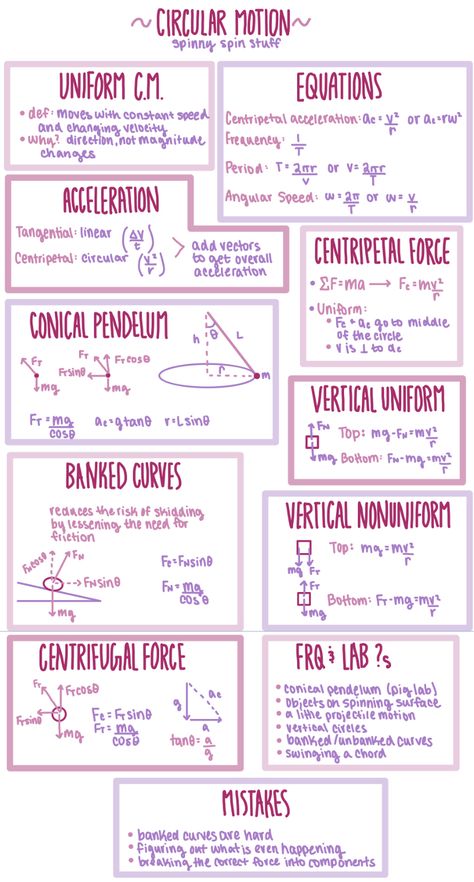 ~ CIRCULAR MOTION ~
spinny spin stuff
UNIFORM C.M.
• def: moves with constant speed
and changing velocity
• why? direction, not magnitude
changes
EQUATIONS
Centripetal acceleration: ac = v²/r or ac = rω²
Frequency: 1/T
Period: T = 2πr/v or v = 2πr/T
Angular Speed: ω = 2π/T or ω = v/r
ACCELERATION
Tangential: linear (Δv/t)
Centripetal: circular (v²/r)
> add vectors
to get overall
acceleration
CENTRIPETAL FORCE
• ΣF=ma → Fc = mv²/r
• Uniform:
• Fc + ac go to middle
of the circle
• v is ⊥ to ac
CONICAL PENDELUM
FT
mg
FT
FTcosθ
FTsinθ
mg
h
θ
L
r
m
FT = mg/cosθ ac = gtanθ r = Lsinθ
VERTICAL UNIFORM
FN
mg
Top: mg-FN = mv²/r
Bottom: FN-mg = mv²/r
BANKED CURVES
reduces the risk of skidding
by lessening the need for
friction
FNcosθ
FN
FNsinθ
mg
Fc = FNsinθ
FN = mg/cosθ
VERTICAL NONUNIFORM
mg FT
Top: mg = mv²/r
FT
mg
Bottom: FT-mg = mv²/r
CENTRIFUGAL FORCE
FT
FTcosθ
FTsinθ
mg
Fc = FTsinθ
FT = mg/cosθ
g
ac
a
tanθ = a/g
FRQ & LAB ?s
• conical pendelum (pig lab)
• objects on spinning surface
• a little projectile motion
• vertical circles
• banked/unbanked curves
• swinging a chord
MISTAKES
• banked curves are hard
• figuring out what is even happening
• breaking the correct force into components